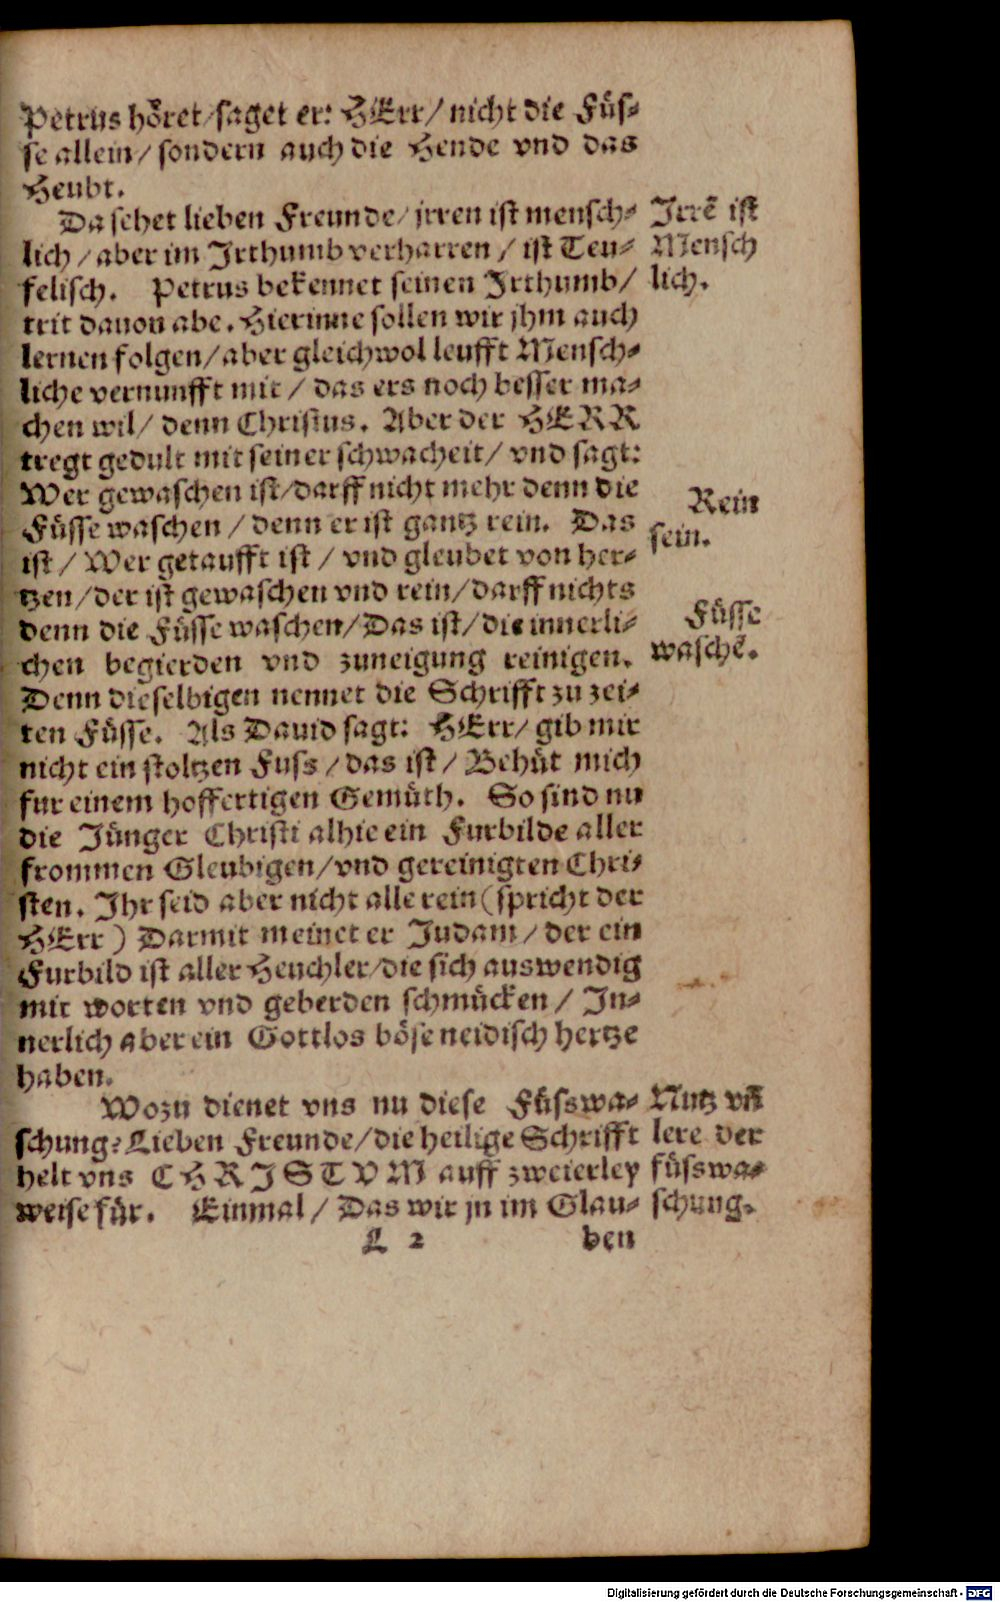 Petrus höret/saget er: HErr/ nicht die Füs-
se allein/ sondern auch die Hende vnd das
Heubt.
Da sehet lieben Freunde/ jrren ist mensch-
lich/ aber im Jrthumb verharren/ ist Teu-
felisch. Petrus bekennet seinen Jrthumb/
trit dauon abe. Hierinne sollen wir jhm auch
lernen folgen/ aber gleichwol leufft Mensch-
liche vernunfft mit/ das ers noch besser ma-
chen wil/ denn Christus. Aber der HERR
tregt gedult mit seiner schwacheit/ vnd sagt:
Wer gewaschen ist/darff nicht mehr denn die
Füsse waschen/ denn er ist gantz rein. Das
ist/ Wer getaufft ist/ vnd gleubet von her-
tzen/der ist gewaschen vnd rein/darff nichts
denn die Füsse waschen/Das ist/die innerli-
chen begierden vnd zuneigung reinigen.
Denn dieselbigen nennet die Schrifft zu zei-
ten Füsse. Als Dauid sagt: HErr/ gib mir
nicht ein stoltzen Fuss/ das ist/ Behüt mich
fur einem hoffertigen Gemüth. So sind nu
die Jünger Christi alhie ein Furbilde aller
frommen Gleubigen/vnd gereinigten Chri-
sten. Jhr seid aber nicht alle rein (spricht der
HErr) Darmit meinet er Judam/ der ein
Furbild ist aller Heuchler/die sich auswendig
mit worten vnd geberden schmücken/ Jn-
nerlich aber ein Gottlos böse neidisch hertze
haben.
Wozu dienet vns nu diese Füsswa-
schung? Lieben Freunde/die heilige Schrifft
helt vns CHRJSTVM auff zweierley
weise für. Einmal/ Das wir jn im Glau-
L 2 ben
Jrrē ist
Mensch
lich.
Rein
sein.
Füsse
waschē.
Nutz vñ
lere der
füsswa-
schung.
Digitalisierung gefördert durch die Deutsche Forschungsgemeinschaft - DFG